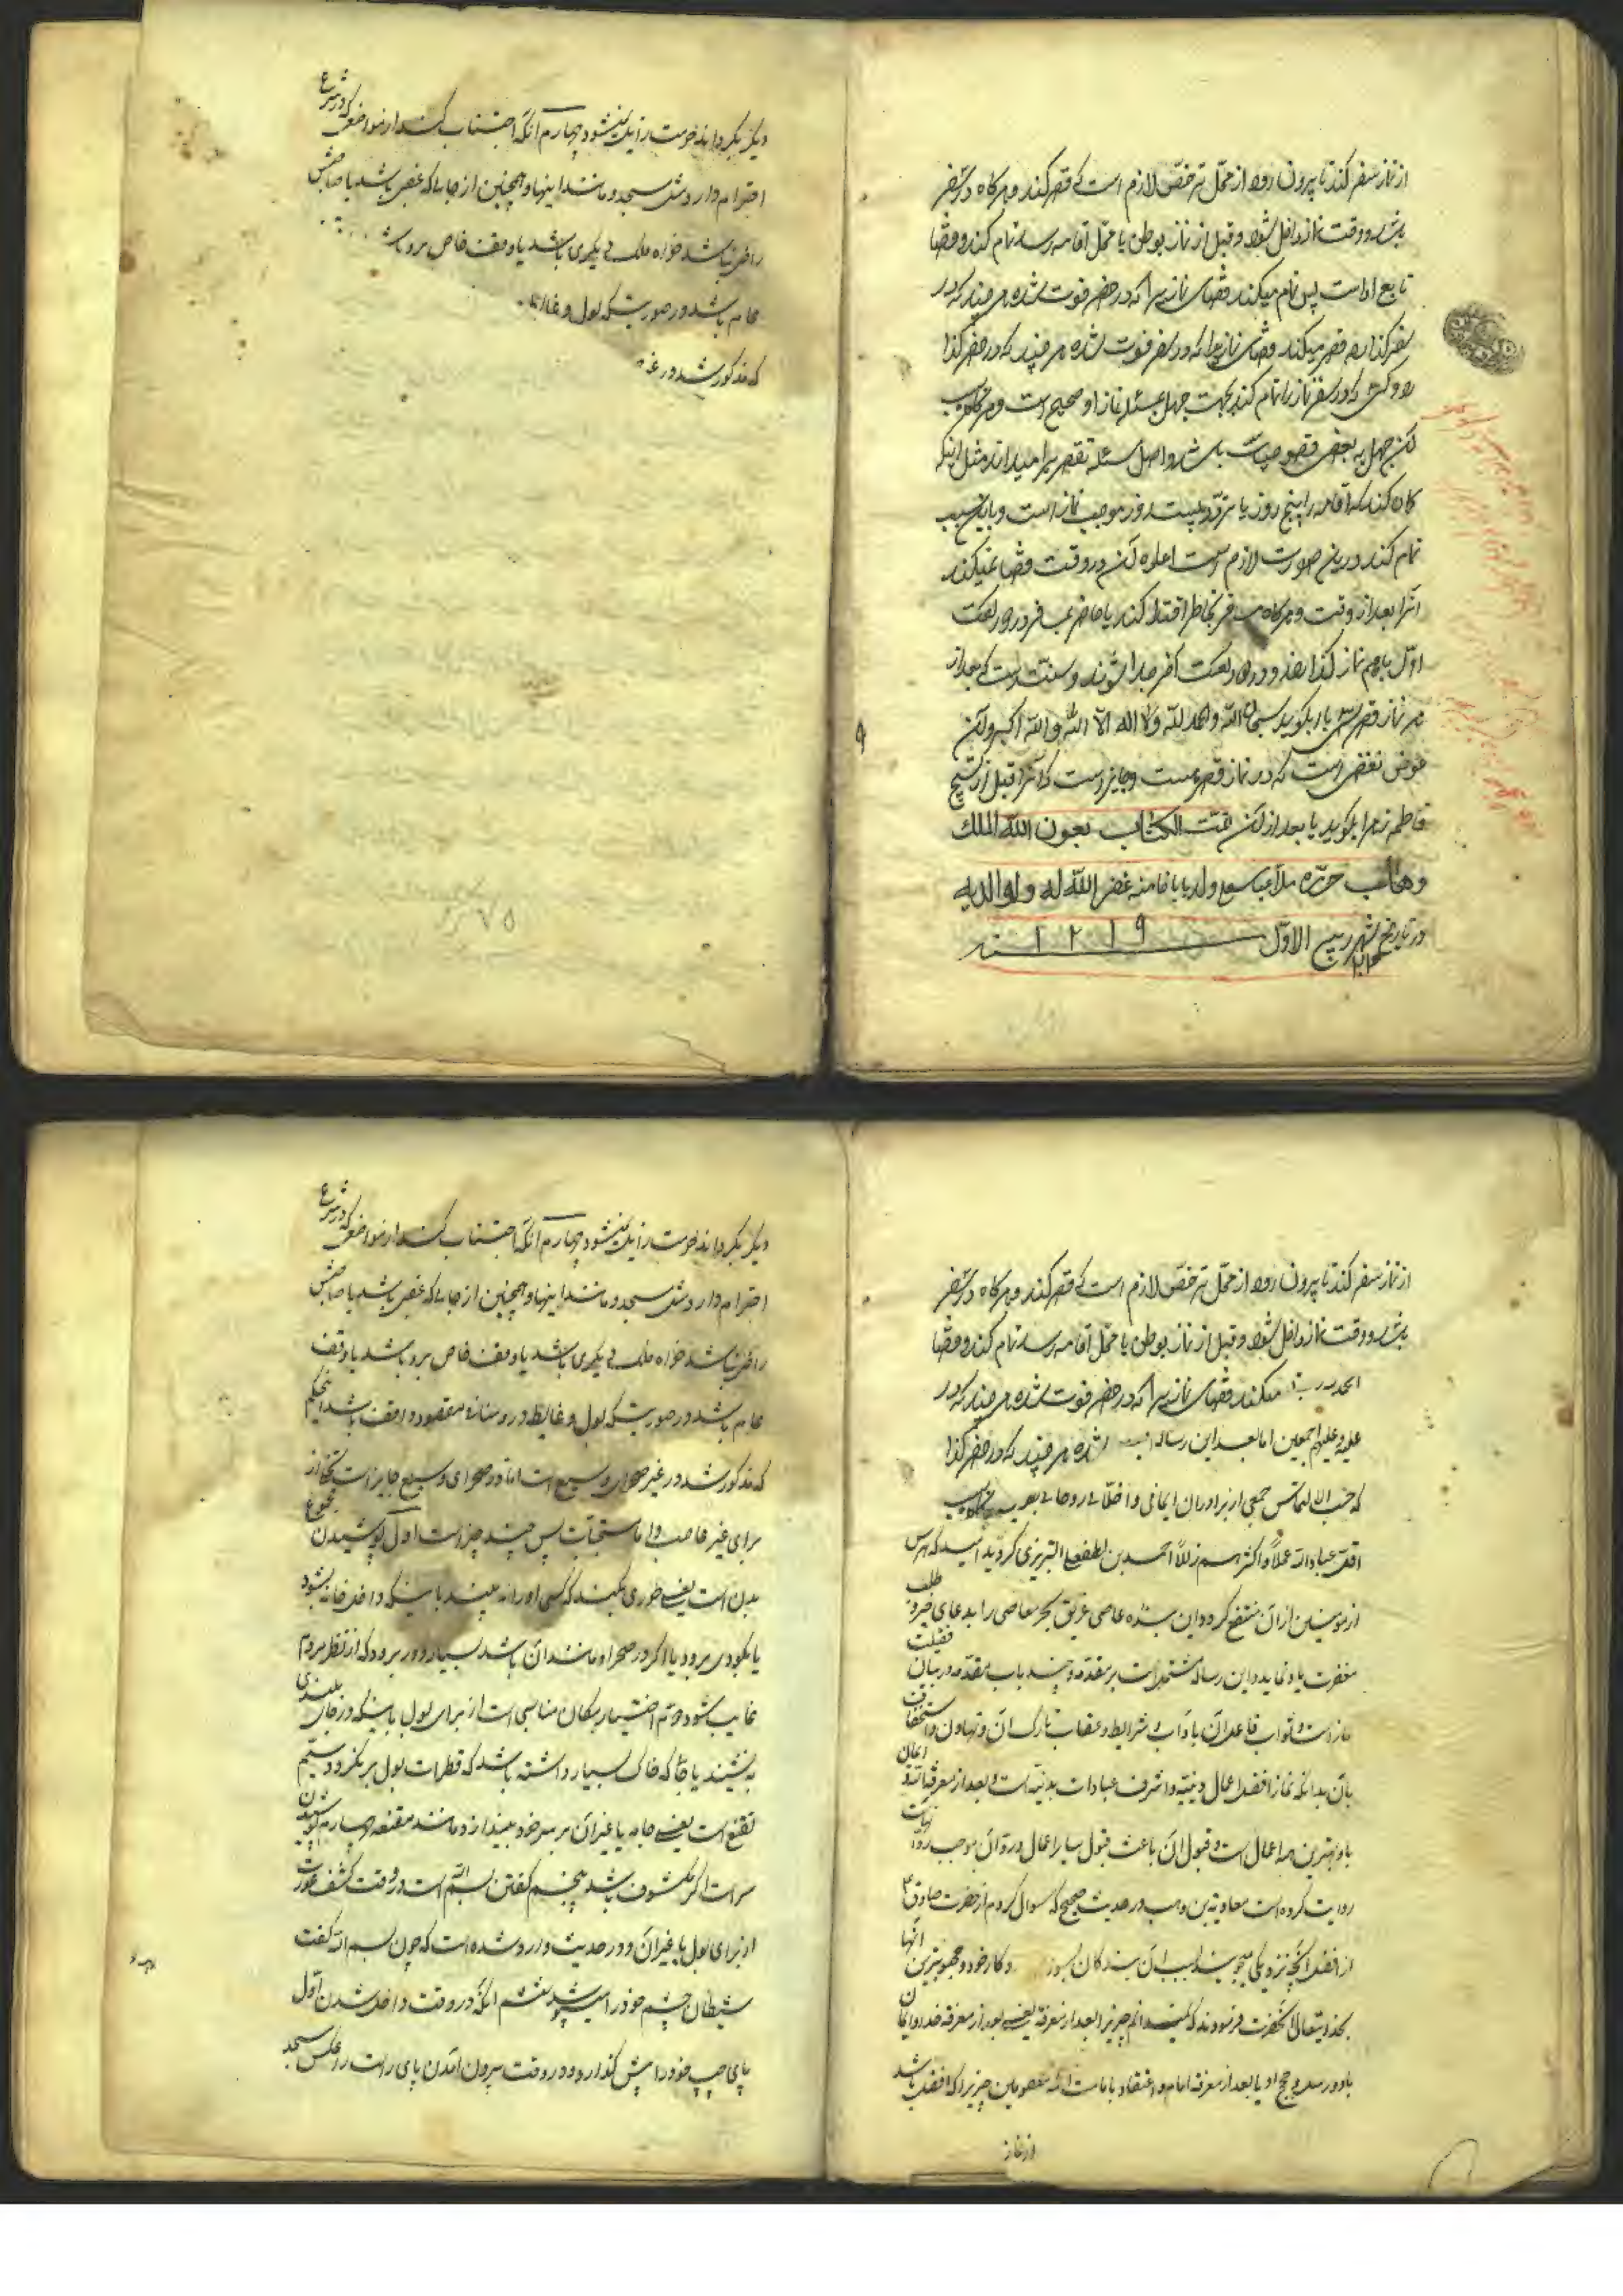 از نماز سفر کند تا بیرون رود از محل ترخص لازم است که قصر کند و هرگاه در سفر
باشد و وقت نماز داخل شود و قبل از نماز بوطن یا محل اقامه رسد تمام کند و قضا
تابع اداست پس تمام میکند قضای نمازیرا که در حضر فوت شده هر چند که در
سفر گذارد و قصر میکند قضای نمازیرا که در سفر فوت شده هر چند که در حضر گذا
رد و کسی که در سفر نماز را تمام کند بجهت جهل بمسئله نماز او صحیح است و هرگاه
لکن جهل به بعضی خصوصیات باشد و اصل مسئله تقصیر را میداند مثل اینکه
گمان کند که اقامه پنج روز یا تردد بیست روز موجب نماز است و باین سبب
تمام کند در این صورت لازم است اعاده آن در وقت و قضا نمیکند
آنرا بعد از وقت و هرگاه مسافر بحاضر اقتدا کند یا حاضر بمسافر در دو رکعت
اول باهم نماز گذارند و در دو رکعت آخر جدا شوند و سنت است که بعد از
هر نماز قصر سی بار بگوید سبحان الله والحمد لله ولا اله الا الله والله اکبر و آن
عوض نقصی است که در نماز قصر هست و جایز است که آنرا قبل از تسبیح
فاطمه زهرا بگوید یا بعد از آن تمت الکتاب بعون الله الملک
وهاب حرره ملا عباسعلی ولد بابا غفر الله له و لوالدیه
در تاریخ شهر ربیع الاول ۱۲۱۹ سنه
دیگر بگرداند چهارم آنکه اجتناب کند از مواضعی که در شرع
احترام دارد مثل مسجد و مانند اینها و همچنین از جایی که غصبی باشد یا صاحبش
راضی نباشد خواه ملک دیگری باشد یا وقف خاص بر او باشد
عام باشد در صورتیکه بول و غایط
که مذکور شد در غیر
۷۵
از نماز سفر کند تا بیرون رود از محل ترخص لازم است که قصر کند و هرگاه در سفر
باشد و وقت نماز داخل شود و قبل از نماز بوطن یا محل اقامه رسد تمام کند و قضا
الحمد میکند قضای نمازیرا که در حضر فوت شده هر چند که در
علیه و علیهم اجمعین اما بعد این رساله شده هر چند که در حضر گذا
که حسب الالتماس جمعی از برادران ایمانی و اخلای روحانی
اقل عباد الله عملا و اکثرهم زللا احمد بن لطفعلی التبریزی گردید امید که هر کس
از مؤمنین از آن منتفع گردد این بنده عاصی غریق بحر معاصی را بدعای خیر و طلب
مغفرت یاد نماید و این رساله مشتمل است بر مقدمه و چند باب مقدمه در بیان فضیلت
نماز است و ثواب فاعل آن با آداب و شرایط و عقاب تارک آن و تهاون و استخفاف
بآن بدانکه نماز افضل اعمال دینیه و اشرف عبادات بدنیه است و بعد از معرفة الله و ایمان
باو بهترین همه اعمال است و قبول آن باعث قبول سایر اعمال و رد آن موجب رد آنهاست
روایت کرده است معاویة بن وهب در حدیث صحیح که سوال کردم از حضرت صادق ع
از افضل آنچه نزدیکی میجویند بسبب آن بندگان بسوی پروردگار خود و محبوبترین آنها
بخدایتعالی آنحضرت فرمودند که نمیدانم چیزیرا بعد از معرفة یعنی بعد از معرفة خدا و ایمان
باو و رسل و حجج او یا بعد از معرفة امام و اعتقاد بامامت ائمه معصومین چیزیرا که افضل باشد
از نماز
دیگر بگرداند چهارم آنکه اجتناب کند از مواضعی که در شرع
احترام دارد مثل مسجد و مانند اینها و همچنین از جایی که غصبی باشد یا صاحبش
راضی نباشد خواه ملک دیگری باشد یا وقف خاص بر او باشد یا وقف
عام باشد در صورتیکه بول و غایط در او منافی مقصود واقف باشد اینحکم
که مذکور شد در غیر صحرای وسیع است اما در صحرای وسیع جایز است تخلی از
برای غیر غاصب و اما مستحبات پس چند چیز است اول پوشیدن مجموع
بدن است یعنی طوری بکند که کسی او را نه بیند باینکه داخل خانه بشود
یا بگودی برود یا اگر در صحرا و مانند آن باشد بسیار دور برود که از نظر مردم
غایب شود دوم اختیار مکان مناسبی است از برای بول باینکه در جای بلندی
بنشیند یا جائیکه خاک بسیار داشته باشد که قطرات بول بر نگردد سیم
تقنع است یعنی جامه یا غیر آن بر سر خود بیندازد مانند مقنعه چهارم پوشیدن
سر است اگر مکشوف باشد پنجم گفتن بسم الله است در وقت کشف عورت
از برای بول یا غیر آن و در حدیث وارد شده است که چون بسم الله گفت
شیطان چشم خود را میپوشد ششم آنکه در وقت داخل شدن اول
پای چپ خود را پیش گذارد و در وقت بیرون آمدن پای راست را بعکس مسجد